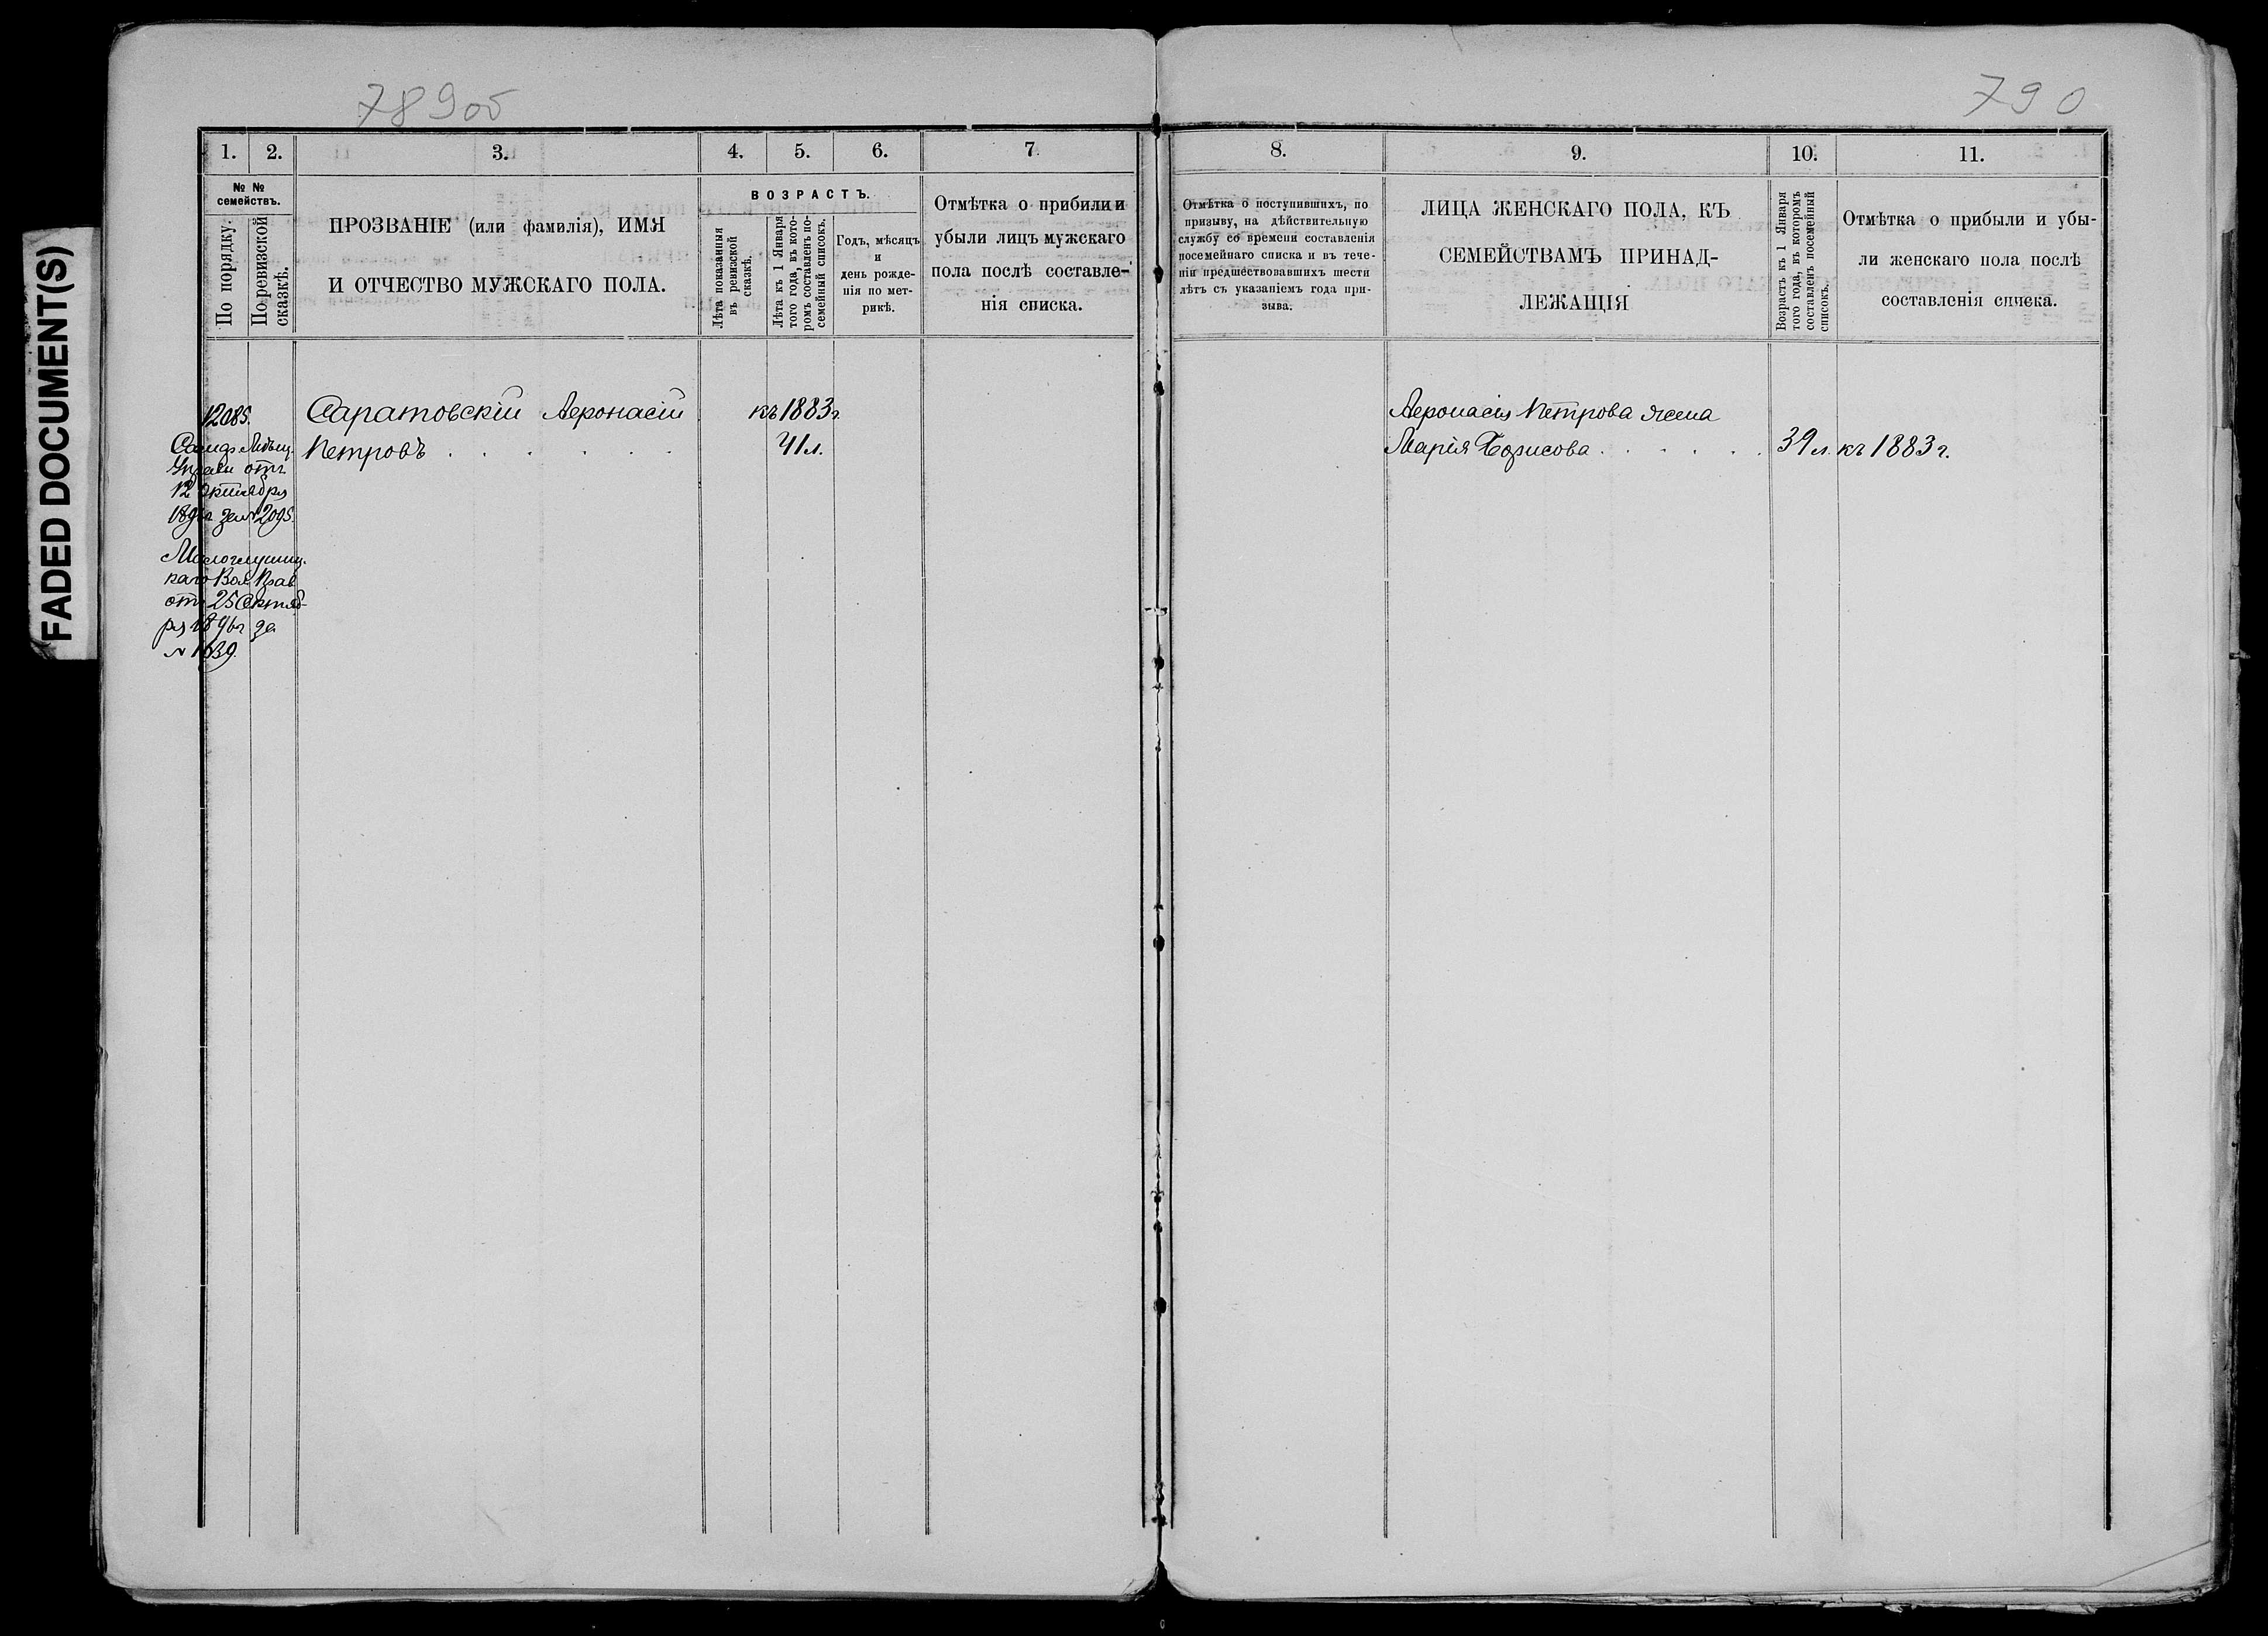 FADED DOCUMENT(S)
789об
790
1. 2. 3. 4. 5. 6. 7.
№ № семействъ.
По порядку.
По ревизской сказкѣ.
ПРОЗВАНІЕ (или фамилія), ИМЯ
И ОТЧЕСТВО МУЖСКАГО ПОЛА.
ВОЗРАСТЪ.
Лѣта показанныя
въ ревизской
сказкѣ.
Лѣта къ 1 Января
того года, въ кото-
ромъ составленъ по-
семейный списокъ.
Годъ, мѣсяцъ
и
день рожде-
нія по мет-
рикѣ.
Отмѣтка о прибыли и
убыли лицъ мужскаго
пола послѣ составле-
нія списка.
12085.
Саратовскій Афонасій къ 1883 г
Петровъ . . . . . . 41 л.
отъ
12 октября
2095.
каго Вол Прав
отъ 25 Октяб-
ря за
№ 1639.
8. 9. 10. 11.
Отмѣтка о поступившихъ, по
призыву, на дѣйствительную
службу со времени составленія
посемейнаго списка и въ тече-
ніи предшествовавшихъ шести
лѣтъ съ указаніемъ года при-
зыва.
ЛИЦА ЖЕНСКАГО ПОЛА, КЪ
СЕМЕЙСТВАМЪ ПРИНАД-
ЛЕЖАЩІЯ
Возрастъ къ 1 Января
того года, въ которомъ
составленъ посемейный
списокъ.
Отмѣтка о прибыли и убы-
ли женскаго пола послѣ
составленія списка.
Афонасія Петрова жена
Марія Борисова . . . . . . 39 л. къ 1883 г.